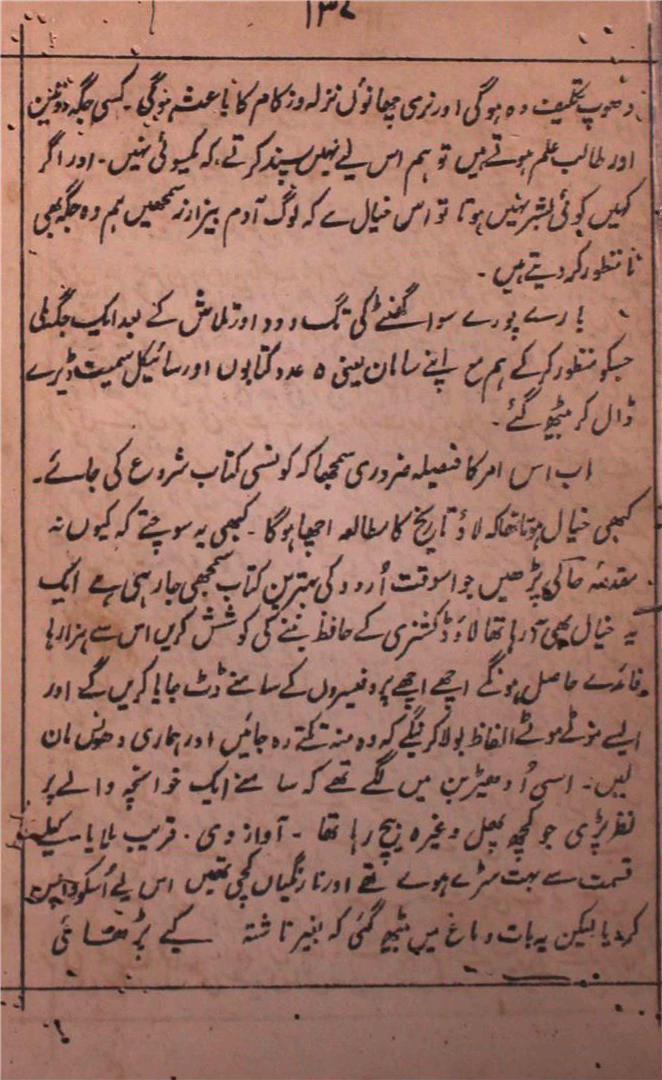 ۱۳۷
دھوپ تکلیف دہ ہوگی اور نری چھانوں نزلہ و زکام کا باعث ہوگی۔ کسی جگہ دو تین
اور طالب علم ہوتے ہیں تو ہم اس لیے نہیں پسند کرتے۔ کہ یکسوئی نہیں۔ اور اگر
کہیں کوئی بشر نہیں ہوتا تو اس خیال سے کہ لوگ آدم بیزار نہ سمجھیں ہم وہ جگہ بھی
نا منظور کر دیتے ہیں۔
بارے پورے سوا گھنٹے کی تگ و دو اور تلاش کے بعد ایک جگہ ملی
جسکو منظور کرکے ہم مع اپنے سامان یعنی ۵ عدد کتابوں اور سائیکل سمیت ڈیرے
ڈال کر بیٹھ گئے۔
اب اس امر کا فیصلہ ضروری سمجھا کہ کونسی کتاب شروع کی جائے۔
کبھی خیال ہوتا تھا کہ لاؤ تاریخ کا مطالعہ اچھا ہوگا۔ کبھی یہ سوچتے کہ کیوں نہ
مقدمۂ حالی پڑھیں جو اسوقت اُردو کی بہترین کتاب سمجھی جارہی ہے ایک
یہ خیال بھی آرہا تھا لاؤ ڈکشنری کے حافظ بننے کی کوشش کریں اس سے ہزارہا
فائدے حاصل ہونگے اچھے اچھے پروفیسروں کے سامنے ڈٹ جایا کریں گے اور
ایسے موٹے موٹے الفاظ بولا کرینگے کہ وہ منہ تکتے رہ جائیں اور ہماری دھونس مان
لیں۔ اسی اُدھیڑبن میں لگے تھے کہ سامنے ایک خوانچہ والے پر
نظر پڑی جو کچھ پھل وغیرہ بیچ رہا تھا۔ آواز دی۔ قریب بلایا۔ کیلے
قسمت سے بہت سڑے ہوے تھے اور نارنگیاں کچی تھیں اس لیے اُسکو واپس
کردیا لیکن یہ بات دماغ میں بیٹھ گئی کہ بغیر ناشتہ کیے پڑھائی